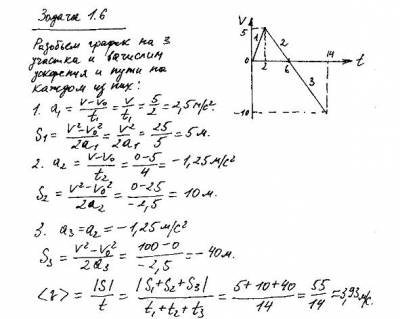 Задача 1.6
Разобьем график на 3
участка и вычислим
ускорения и пути на
каждом из них:
1. a₁ = (v-v₀)/t₁ = v/t₁ = 5/2 = 2,5 м/с².
S₁ = (v²-v₀²)/2a₁ = v²/2a₁ = 25/5 = 5 м.
2. a₂ = (v-v₀)/t₂ = (0-5)/4 = -1,25 м/с²
S₂ = (v²-v₀²)/2a₂ = (0-25)/-2,5 = 10 м.
3. a₃ = a₂ = -1,25 м/с²
S₃ = (v²-v₀²)/2a₃ = (100-0)/-2,5 = -40 м.
<v> = |S|/t = |S₁+S₂+S₃|/(t₁+t₂+t₃) = (5+10+40)/14 = 55/14 = 3,93 м/с.
V
5
1
2
14
0
2
6
t
3
-10